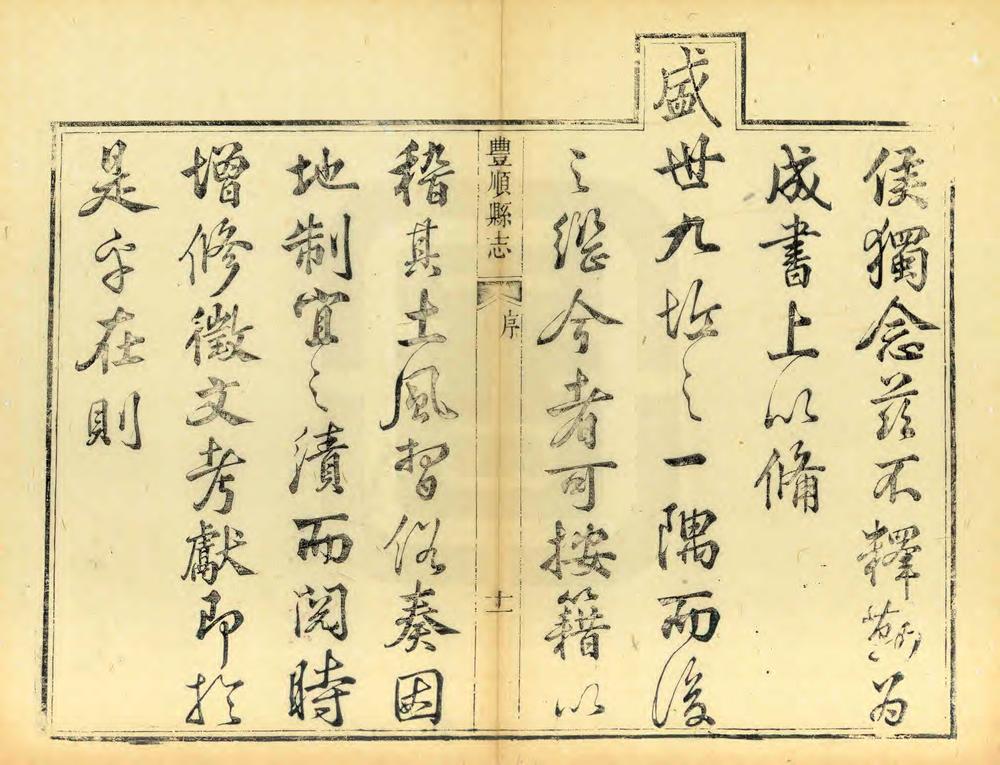 侯獨念茲不釋為
成書上以備
盛世九垓之一隅而後
之繼今者可按籍以
豐順縣志 序 十一
稽其土風習俗奏因
地制宜之績而閱時
增修徵文考獻即於
是乎在則